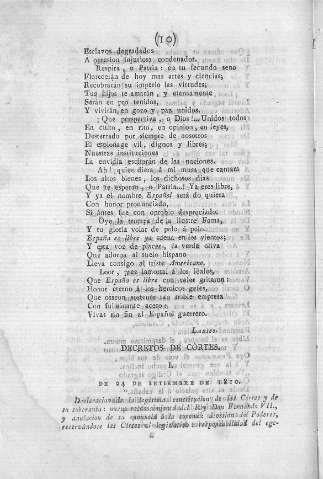 (10)
Esclavos degradados
A opresion injuriosa condenados.
Respira, o Patria: en tu fecundo seno
Florecerán de hoy mas artes y ciencias;
Recobrarán su imperio las virtudes;
Tus hijos te amarán, y eternamente
Serán en pro tenidos,
Y vivirán, en gozo y paz unidos.
¡Que perspectiva, o Dios!... Unidos todos
En culto, en rito, en opinion, en leyes,
Desterrado por siempre de nosotros
El espionage vil, dignos y libres;
Nuestras instituciones
La envidia excitarán de las naciones.
Ah! quien diera á mi musa que cantara
Los altos bienes, los dichosos dias
Que te esperan, o Patria...! Ya eres libre,
Y ya el nombre Español será do quiera
Con honor pronunciado,
Si antes fue con oprobio despreciado.
Oye la trompa de la ilustre Fama,
Y tu gloria volar de polo á polo.
España es libre ya suena en los vientos;
Y esta voz de placer, la verde oliva
Que adorna al suelo hispano
Lleva consigo al triste Americano.
Loor, prez inmortal á los leales,
Que España es libre con valor gritaron:
Honor eterno á los heroicos geles,
Que osaron sostener tan noble empresa
Con fulminante acero:
Vivas sin fin al Español guerrero.
DECRETOS DE CÓRTES.
I.
DE 24 DE SETIEMBRE DE 1810.
Declaracion de la legítima constitucion de las Córtes y de
su soberanía: nuevo reconocimiento del Rey Don Fernando VII.,
y anulacion de su renuncia á la corona: division de Poderes,
reservándose las Córtes el legislativo: responsabilidad del ege-